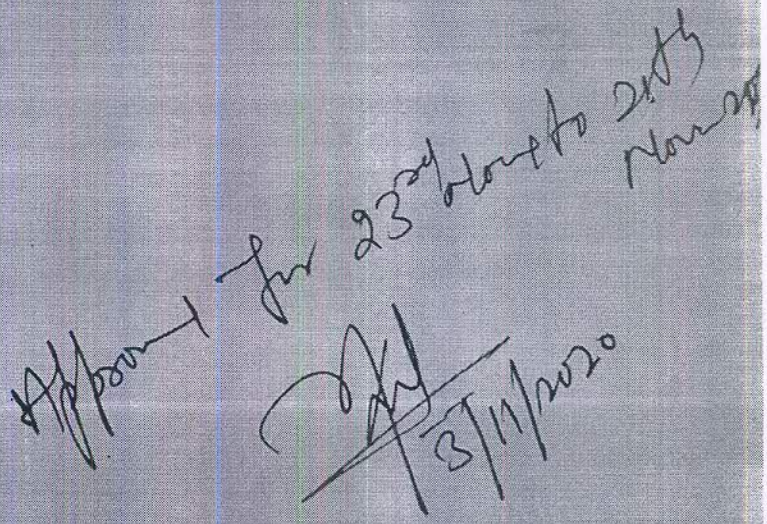 Approved for 23rd Nov to
Nov
3/11/2020